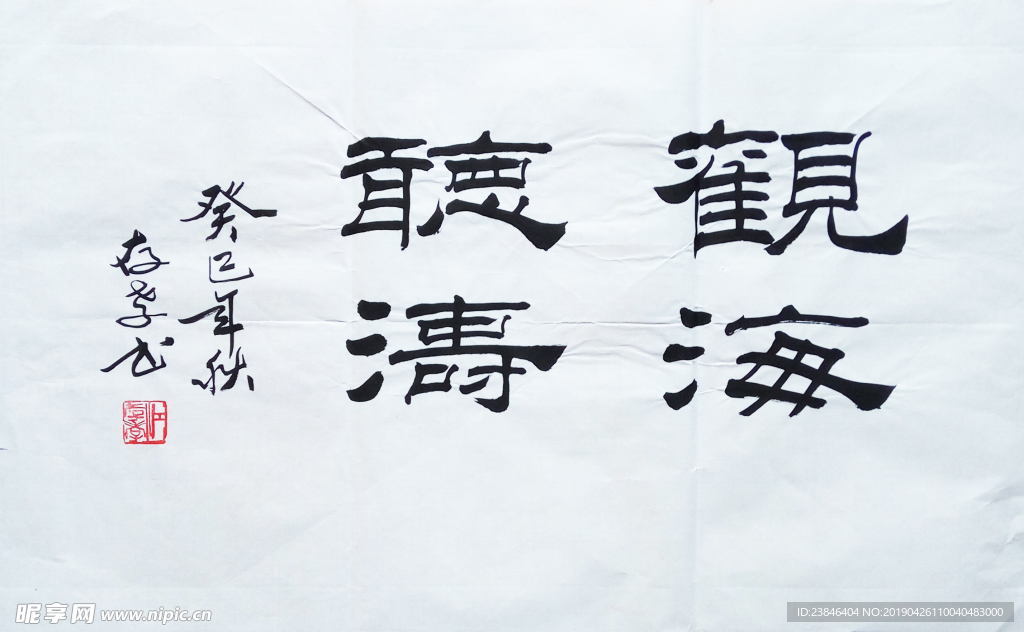 觀海
聽濤
癸巳年秋
存孝书
昵享网 www.nipic.cn
ID:23846404 NO:20190426110040483000